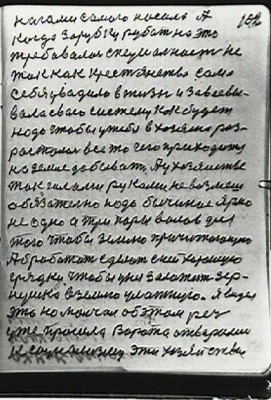 ногами самого носило А 102
когда зарубку рубат на это
требовалося специальность не
так как крестьянства само
себя увадило в жизнь и завоевы-
вала сваго систему как будет
надо чтобы у тебя в хозяйстве раз-
росталось все то чего приходиться
на земле добывать. А у хозяйстве
так силами руками не возмеш
обязательно надо бычиное ярмо
не одно а три пары волов для
того чтобы землю
Обработать сделать с ней хорошую
грядку чтобы у ней заложить зер-
нушка в землю влажную. Я видел
это но молчал об этом реч
уже прошла Ворота отваряли
к социализму эти хозяйства